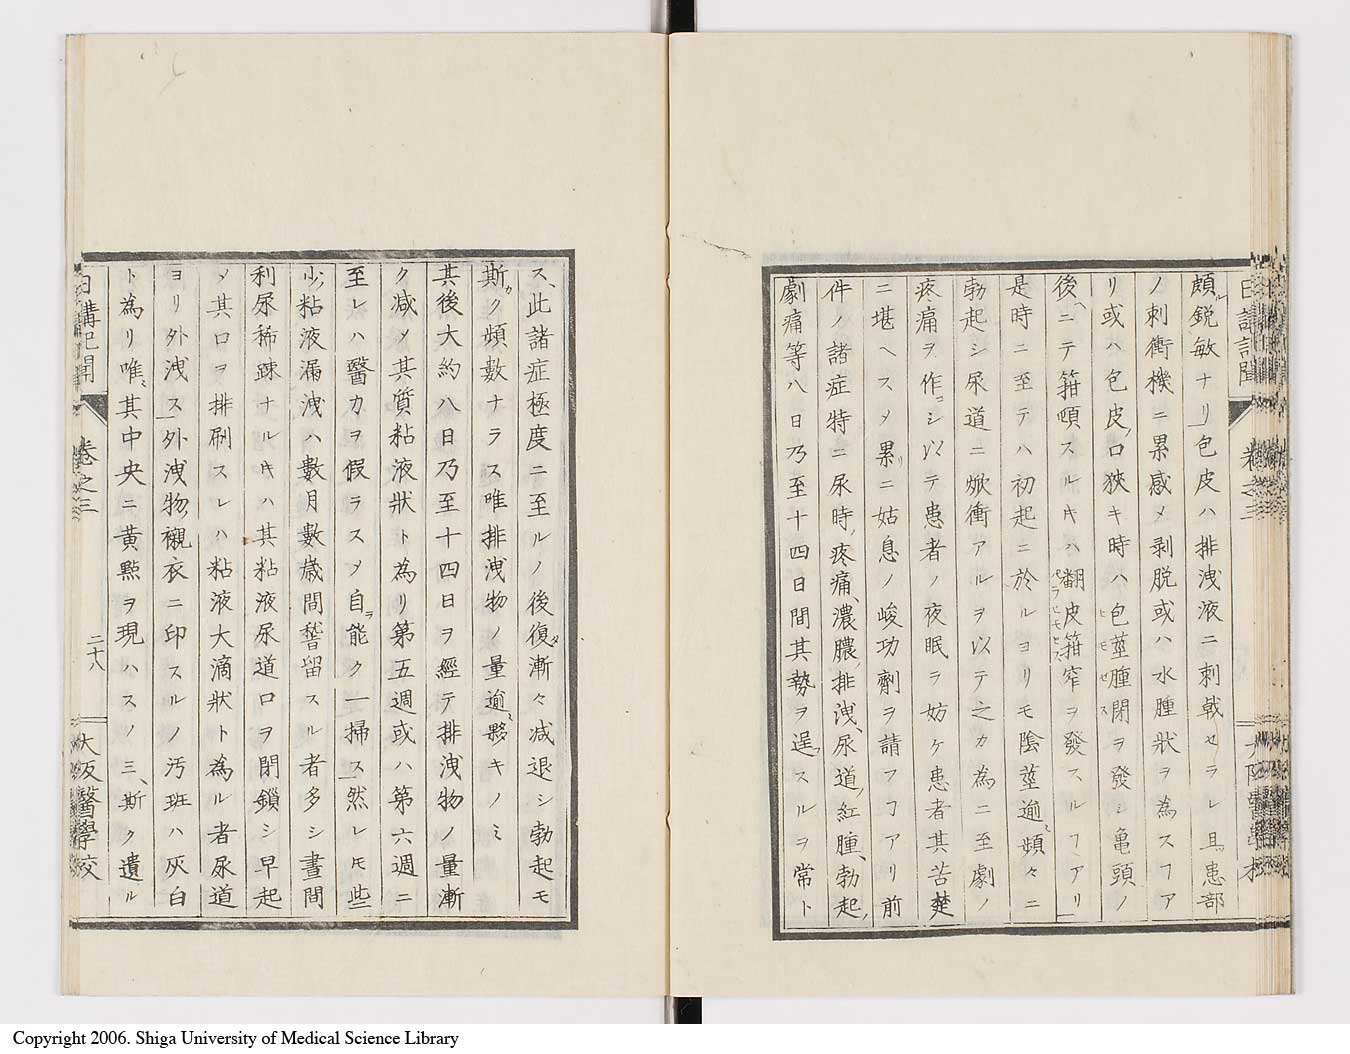 日講記聞 卷之三 大阪醫學校
頗ル鋭敏ナリ」包皮ハ排洩液ニ刺戟セラレ且ツ患部
ノ刺衝機ニ累感メ剥脱或ハ水腫状ヲ為スヿア
リ或ハ包皮、口狹キ時ハ包莖腫閉ヲ發シ亀頭ノ
後ヘニテ箝頓スルキハ翻皮箝窄ヲ發スルヿアリ」
是時ニ至テハ初起ニ於ルヨリモ陰莖逾〻頻々ニ
勃起シ尿道ニ焮衝アルヲ以テ之カ為ニ至劇ノ
疼痛ヲ作コシ以テ患者ノ夜眠ヲ妨ケ患者其苦楚
ニ堪ヘスメ累リニ姑息ノ峻功劑ヲ請フヿアリ前
件ノ諸症特ニ尿時、疼痛、濃膿、排洩、尿道、紅腫、勃起、
劇痛等八日乃至十四日間其勢ヲ逞スルヲ常ト
ス、此諸症極度ニ至ルノ後復タ漸々減退シ勃起モ
斯ク頻數ナラス唯排洩物ノ量逾〻夥キノミ
其後大約八日乃至十四日ヲ經テ排洩物ノ量漸
ク減メ其質粘液狀ト為リ第五週或ハ第六週ニ
至レハ醫力ヲ假ラスメ自ヲ能ク一掃ス」然レ𪜈些
少、粘液漏洩ハ數月數歳間稽留スル者多シ晝間
利尿稀踈ナルキハ其粘液尿道口ヲ閉鎖シ早起
メ其口ヲ排刷スレハ粘液大滴狀ト為ル者尿道
ヨリ外洩ス」外洩物、襯衣ニ印スルノ汚班ハ灰白
ト為リ唯〻其中央ニ黄點ヲ現ハスノミ、斯ク遺ル
日講記聞 卷之三 二十八 大阪醫學校
Copyright 2006. Shiga University of Medical Science Library